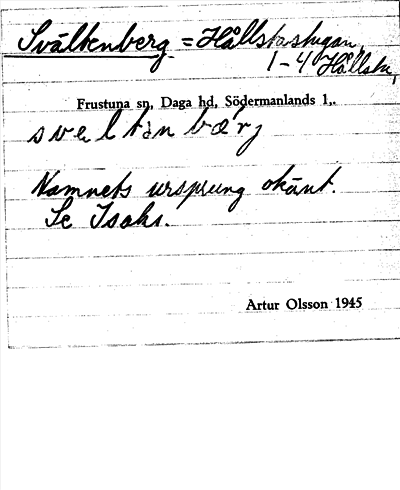 Svältenberg = Hållstastugan,
1-4 Hållsta,
Frustuna sn, Daga hd, Södermanlands l,.
Namnets ursprung okänt.
Se Isaks.
Artur Olsson 1945